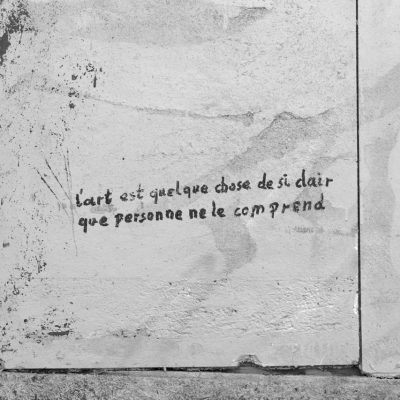 l'art est quelque chose de si clair
que personne ne le comprend